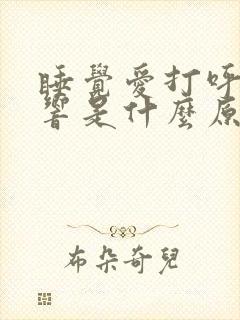 睡覺愛打呼
響是什麼原
布朵奇兒